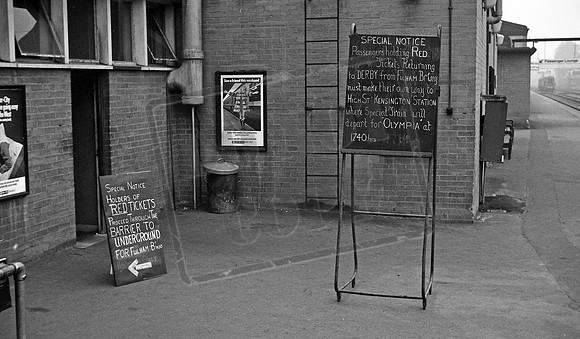 SPECIAL NOTICE
HOLDERS OF
RED TICKETS
PROCEED THROUGH THE
BARRIER TO
UNDERGROUND
FOR FULHAM B'WAY
SPECIAL NOTICE
Passengers holding RED
Tickets Returning
to DERBY from FULHAM B'Way
must make their own way to
HIGH ST KENSINGTON STATION
where Special Train will
depart for 'OLYMPIA' at
1740 hrs